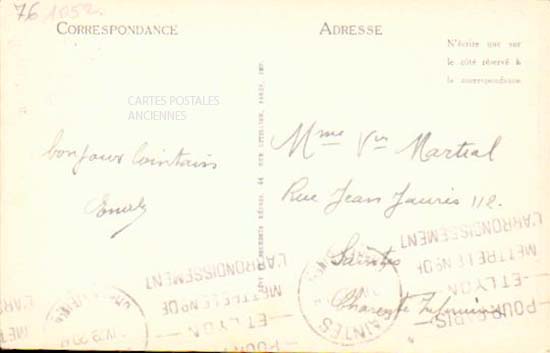 76 1052.
CORRESPONDANCE
ADRESSE
N'écrire que sur
le côté réservé à
la correspondance
CARTES POSTALES
ANCIENNES
bonjours lointains
Mme Vve Martial
Rue Jean Jaurès 112.
Saintes
Charente Inférieure
POUR PARIS
ET LYON
METTRE LE N° DE
L'ARRONDISSEMENT
SAINTES
POUR PARIS
ET LYON
METTRE LE N° DE
L'ARRONDISSEMENT